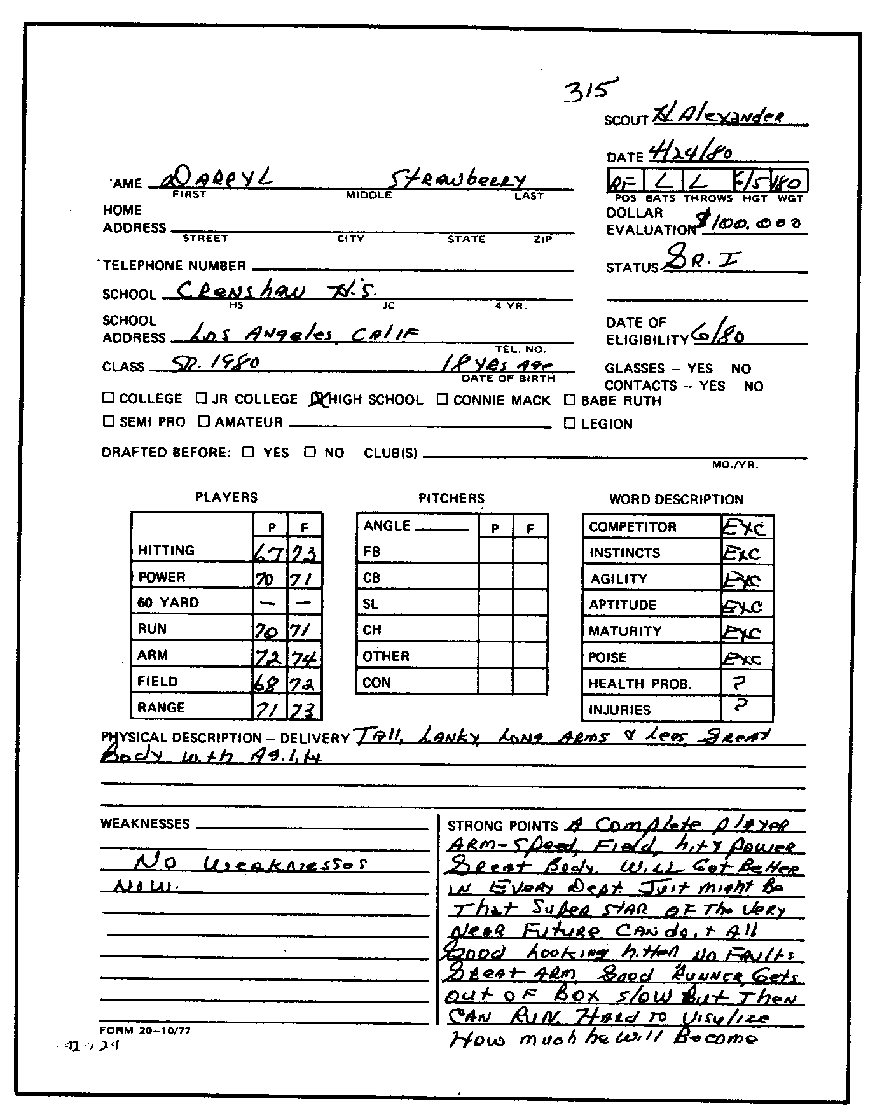 315
SCOUT H Alexander
DATE 4/24/80
NAME DARRYL STRAWBERRY
FIRST MIDDLE LAST
RF L L 6/5 180
POS BATS THROWS HGT WGT
HOME
ADDRESS
STREET CITY STATE ZIP
DOLLAR
EVALUATION $100.000
TELEPHONE NUMBER
STATUS SR. I
SCHOOL CRENSHAW H.S.
HS JC 4 YR.
SCHOOL
ADDRESS LOS ANGELES, CALIF
TEL. NO.
DATE OF
ELIGIBILITY 6/80
CLASS SR. 1980 18 YRS AGE
DATE OF BIRTH
GLASSES – YES NO
CONTACTS – YES NO
☐ COLLEGE ☐ JR COLLEGE ☒ HIGH SCHOOL ☐ CONNIE MACK ☐ BABE RUTH
☐ SEMI PRO ☐ AMATEUR ☐ LEGION
DRAFTED BEFORE: ☐ YES ☐ NO CLUB(S)
MO./YR.
PLAYERS
P F
HITTING 67 73
POWER 70 71
60 YARD – –
RUN 70 71
ARM 72 74
FIELD 68 72
RANGE 71 73
PITCHERS
ANGLE P F
FB
CB
SL
CH
OTHER
CON
WORD DESCRIPTION
COMPETITOR EXC
INSTINCTS EXC
AGILITY EXC
APTITUDE EXC
MATURITY EXC
POISE EXC
HEALTH PROB. ?
INJURIES ?
PHYSICAL DESCRIPTION – DELIVERY TALL, LANKY, LONG ARMS & LEGS, GREAT
Body with Agility
WEAKNESSES
No Weaknesses
NOW.
STRONG POINTS A Complete player
ARM-Speed, Field, hit & power
Great Body. Will Get Better
IN EVERY Dept Just might Be
That Super STAR OF The Very
NEAR Future CAN do it All
Good Looking hitter No Faults
Great ARM, Good RUNNER, Gets
out OF Box slow But Then
CAN RUN. HARD TO Visulize
How much he will Become
FORM 20–10/77